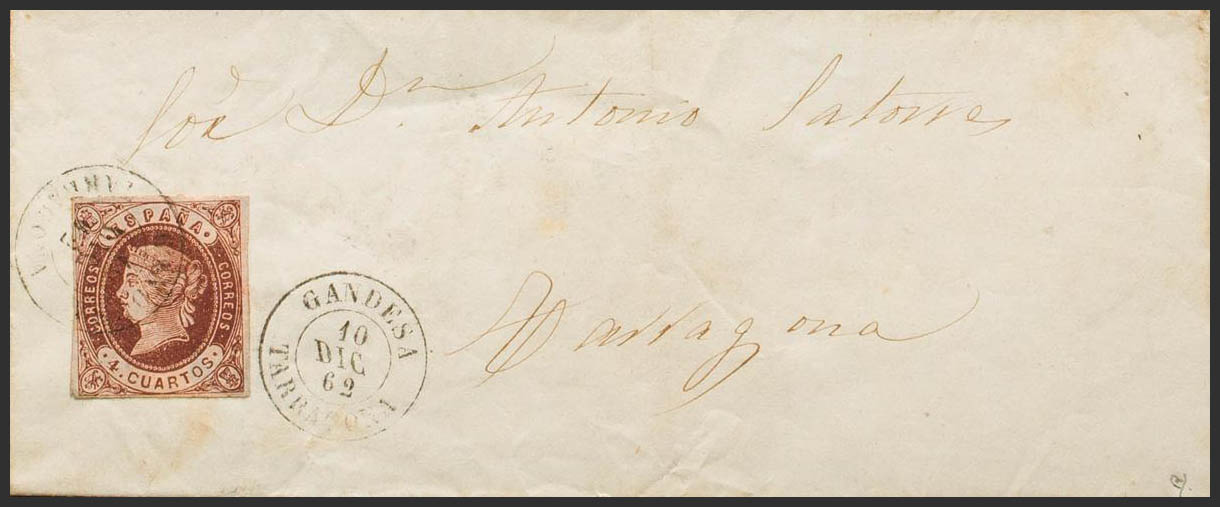 Dn. Antonio Satorres
Tarragona
ESPAÑA
CORREOS
CORREOS
4. CUARTOS.
GANDESA
10
DIC
62
TARRAGONA